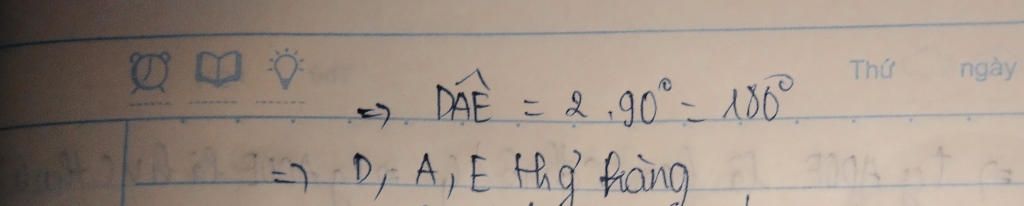 Thứ ngày
=> DÂE = 2.90° = 180°
=> D, A, E thg hàng